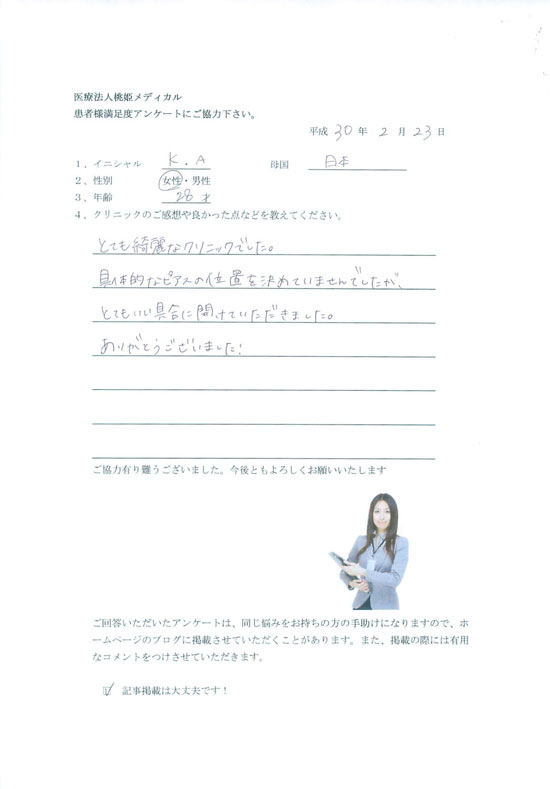 医療法人桃姫メディカル
患者様満足度アンケートにご協力下さい。
平成 30 年 2 月 23 日
1，イニシャル K.A 母国 日本
2，性別 女性・男性
3，年齢 28才
4，クリニックのご感想や良かった点などを教えてください。
とても綺麗なクリニックでした。
具体的なピアスの位置を決めていませんでしたが、
とてもいい具合に開けていただきました。
ありがとうございました！
ご協力有り難うございました。今後ともよろしくお願いいたします
ご回答いただいたアンケートは、同じ悩みをお持ちの方の手助けになりますので、ホ
ームページのブログに掲載させていただくことがあります。また、掲載の際には有用
なコメントをつけさせていただきます。
☑ 記事掲載は大丈夫です！